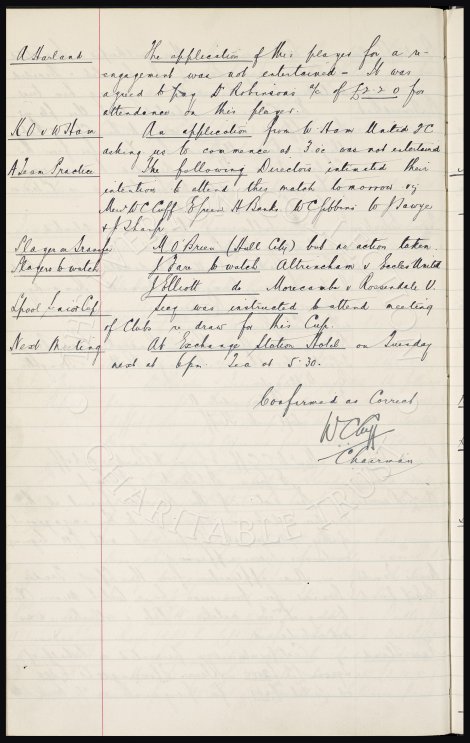 A Harland The application of this player for a re-
engagement was not entertained - It was
agreed to pay Dr Robinsons a/c of £2-2-0 for
attendance on this player.
K.O. v W Ham An application from W Ham United F.C.
asking us to commence at 3 oc was not entertained
A Team Practice The following Directors intimated their
intention to attend this match tomorrow
Messrs W C Cuff E Green H Banks W C Gibbins W J Sawyer
& J Sharp
Player on M O Brien (Hull City) but no action taken.
Players to watch J Fare to watch Altrincham v Eccles United
J Elliott do Morecambe v Rossendale U.
L'pool Cup Secy was instructed to attend meeting
of Clubs re draw for this Cup.
Next Meeting At Exchange Station Hotel on Tuesday
next at 6pm. Tea at 5.30.
Confirmed as Correct
W C Cuff
Chairman
CHARITABLE TRUST